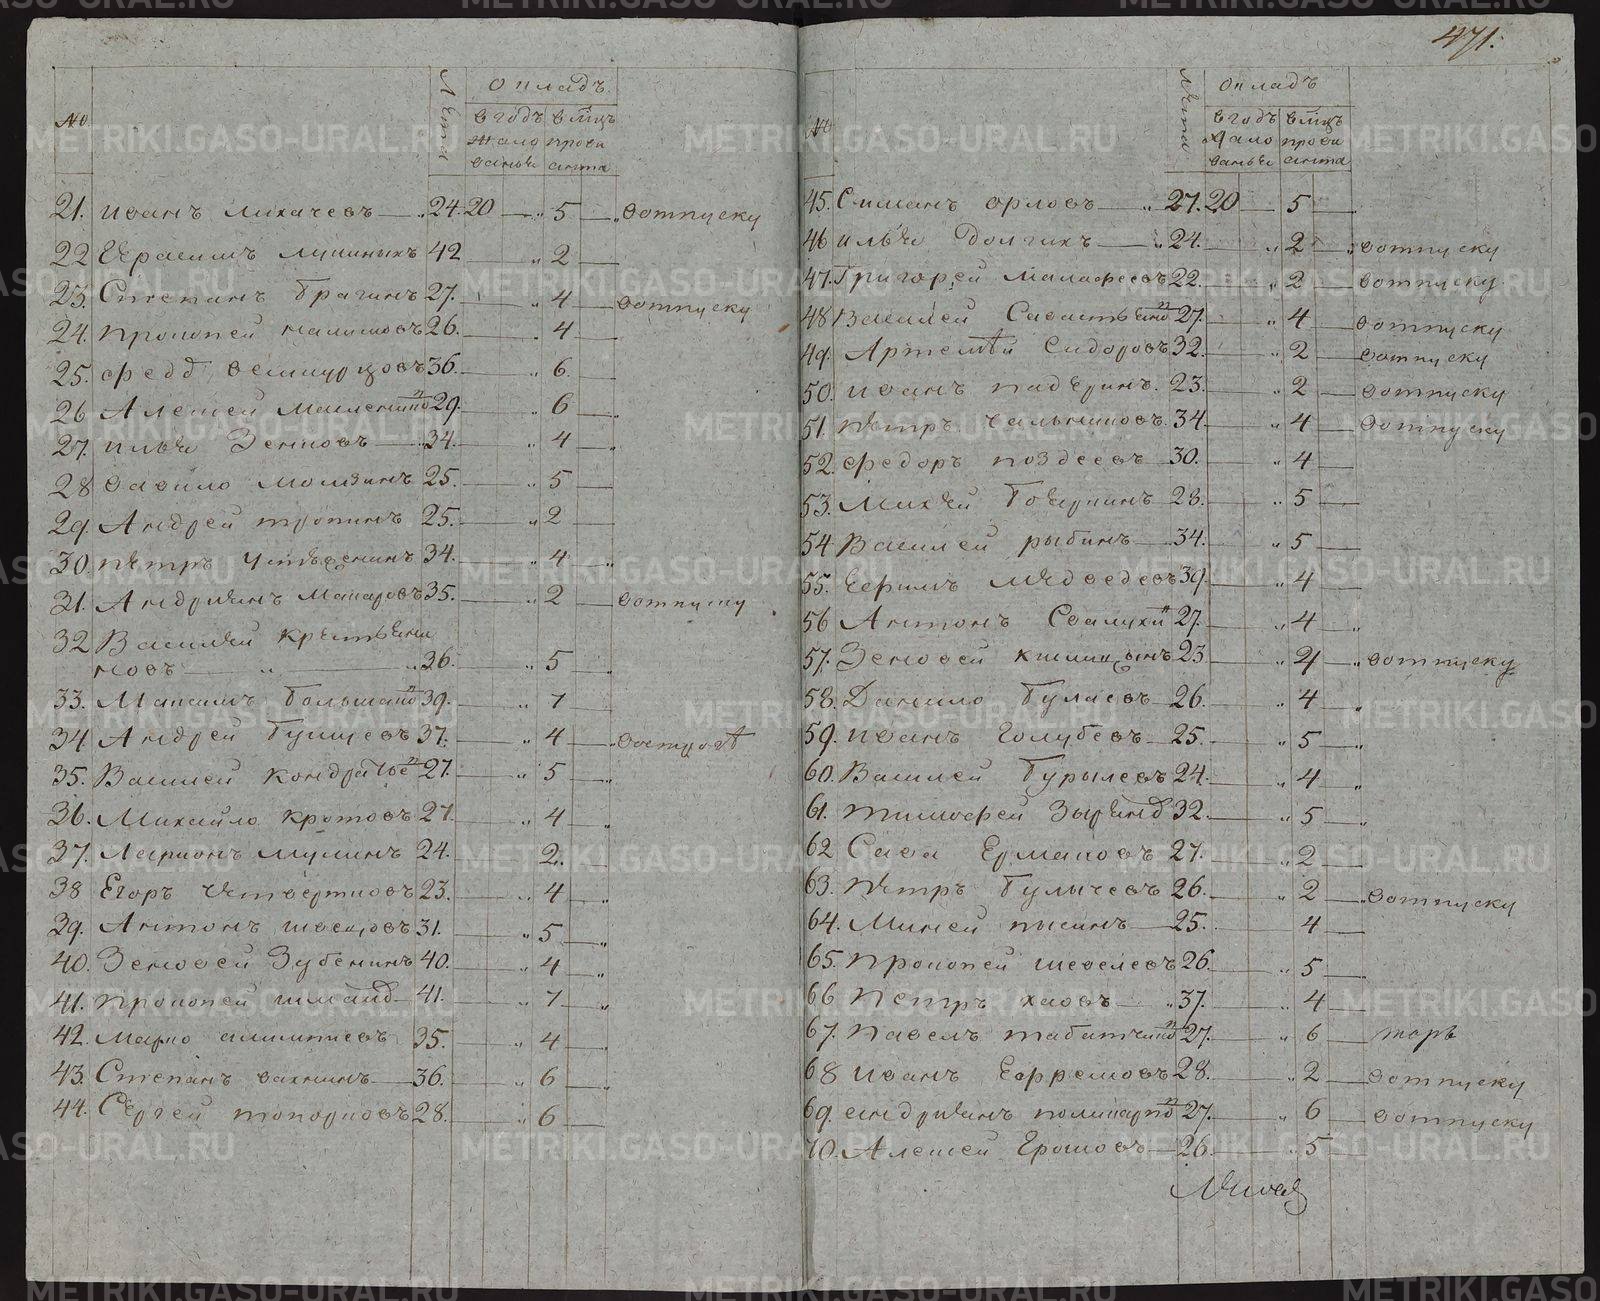 471.
№
Лѣта
Окладъ
в годъ жалованья
в мцъ провианта
21. Иванъ Лихачевъ 24. 20 5 вотпуску
22 Герасимъ 42 2
23. Степанъ Брагинъ 27. 4 вотпуску
24. Прокопей Налимовъ 26. 4
25. Федо 36. 6
26 Алексей 29. 6
27. Илья Земковъ 34. 4
28 Данило 25. 5
29. Андрей Тропинъ 25. 2
30. Петръ Устюженинъ 34. 4
31. Андриянъ Макаровъ 35. 2 вотпуску
32 Василей Крестьянинковъ 26. 5
33. Максимъ Большако 39. 7
34 Андрей 37. 4
35. Василей Кондратье 27. 5
36. Михайло Кротовъ 27. 4
37. Ларионъ Мулинъ 24. 2
38 Егоръ Четвертковъ 23. 4
39. Антонъ Швецовъ 31. 5
40. Зеновей Зубенинъ 40. 4
41. Прокопей 41. 7
42. Марко 35. 4
43. Степанъ Вахнинъ 36. 6
44. Сергей Топорковъ 28. 6
№
Лѣта
Окладъ
в годъ жалованья
в мцъ провианта
45. Симанъ Орловъ 27. 20 5
46 Илья Долгихъ 24. 2 вотпуску
47. Григорей Малафеевъ 22. 2 вотпуску
48 Василей Севастьяно 27. 4 вотпуску
49. Артемѣй Сидоровъ 32. 2 вотпуску
50. Иванъ Падеринъ 23. 2 вотпуску
51. Петръ 34. 4 вотпуску
52. Федоръ Поздеевъ 30. 4
53. Михей 28. 5
54 Василей Рыбинъ 34. 5
55. Ефимъ Медведевъ 39. 4
56 Антонъ Свалухи 27. 4
57. Зеновей 23 4 вотпуску
58. Данило Булаевъ 26. 4
59. Иванъ Голубевъ 25. 5
60. Василей Бурылевъ 24. 4
61. Тимофей Зыряно 32. 5
62 Сава Ермаковъ 27. 2
63. Петръ Булычевъ 26. 2 вотпуску
64. Миней 25. 4
65. Прокопей Шевелевъ 26. 5
66 Петръ 37. 4
67. Павелъ Табатчико 27. 6
68 Иванъ Ефремовъ 28. 2 вотпуску
69. Андриянъ Поликарпо 27. 6 вотпуску
70. Алексей Ершовъ 26. 5